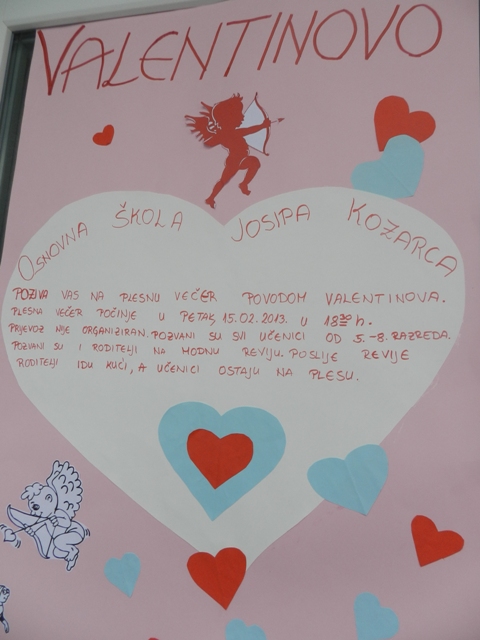 VALENTINOVO
OSNOVNA ŠKOLA JOSIPA KOZARCA
POZIVA VAS NA PLESNU VEČER POVODOM VALENTINOVA.
PLESNA VEČER POČINJE U PETAK, 15.02.2013. U 18:30 h.
PRIJEVOZ NIJE ORGANIZIRAN. POZVANI SU SVI UČENICI OD 5.-8. RAZREDA.
POZVANI SU I RODITELJI NA MODNU REVIJU. POSLIJE REVIJE
RODITELJI IDU KUĆI, A UČENICI OSTAJU NA PLESU.